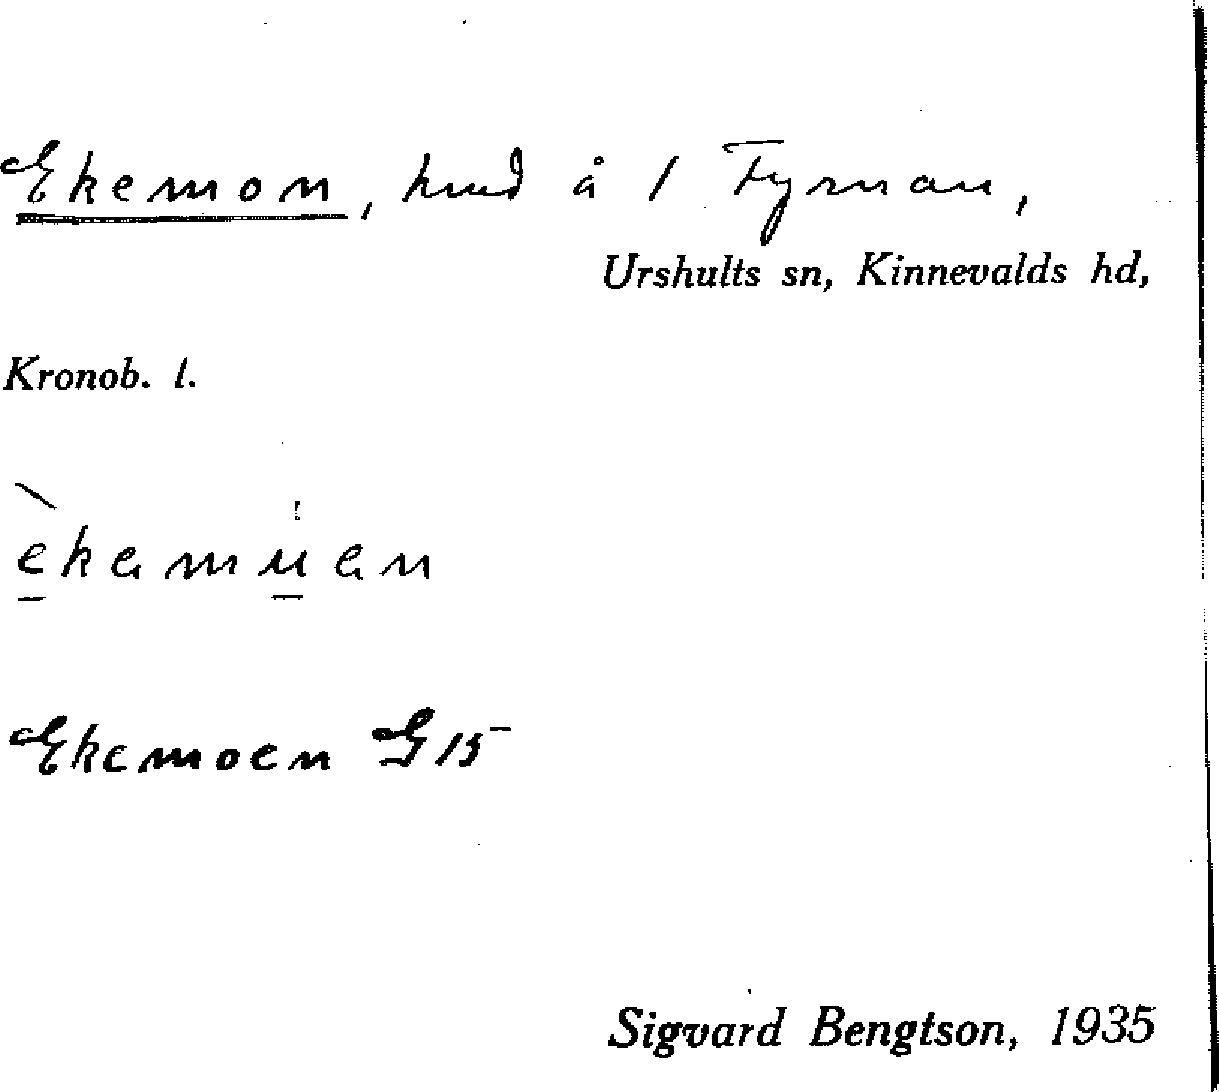 Ekemon, hmd å 1 Fyrnan,
Urshults sn, Kinnevalds hd,
Kronob. l.
ekamuan
Ekemoen G 15
Sigvard Bengtson, 1935